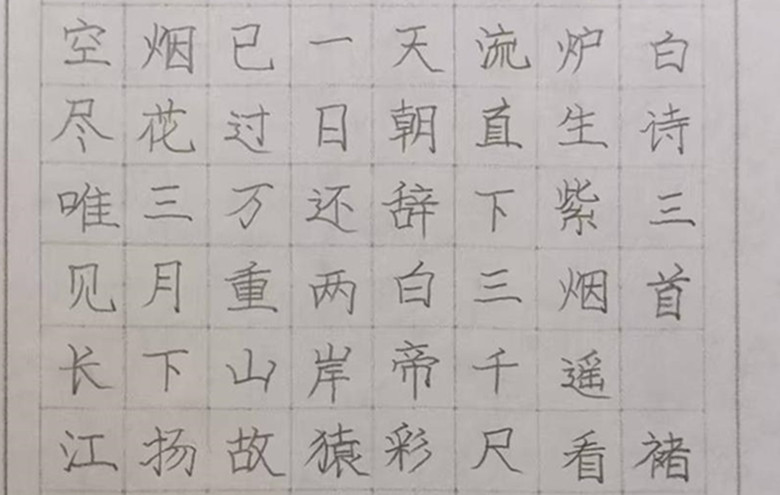 白诗三首 褚
炉生紫烟遥看
流直下三千尺
天朝辞白帝彩
一日还两岸猿
已过万重山故
烟花三月下扬
空尽唯见长江